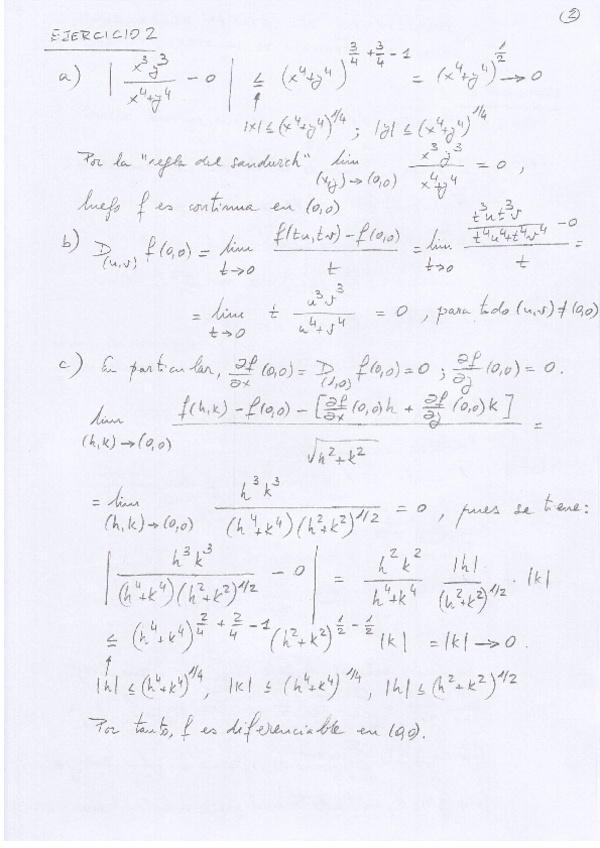 ②
EJERCICIO 2
a) | x³y³/(x⁴+y⁴) − 0 | ≤ (x⁴+y⁴)^(3/4 + 3/4 − 1) = (x⁴+y⁴)^(1/2) → 0
↑
|x| ≤ (x⁴+y⁴)^1/4 ; |y| ≤ (x⁴+y⁴)^1/4
Por la "regla del sandwich" lim (x,y)→(0,0) x³y³/(x⁴+y⁴) = 0 ,
luego f es continua en (0,0)
b) D(u,v) f(0,0) = lim t→0 (f(tu,tv) − f(0,0))/t = lim t→0 (t³u t³v/(t⁴u⁴+t⁴v⁴) − 0)/t =
= lim t→0 t u³v³/(u⁴+v⁴) = 0 , para todo (u,v) ≠ (0,0)
c) En particular, ∂f/∂x (0,0) = D(1,0) f(0,0) = 0 ; ∂f/∂y (0,0) = 0.
lim (h,k)→(0,0) (f(h,k) − f(0,0) − [∂f/∂x (0,0)h + ∂f/∂y (0,0)k])/√(h²+k²) =
= lim (h,k)→(0,0) h³k³/((h⁴+k⁴)(h²+k²)^1/2) = 0 , pues se tiene:
| h³k³/((h⁴+k⁴)(h²+k²)^1/2) − 0 | = h²k²/(h⁴+k⁴) |h|/(h²+k²)^1/2 · |k|
≤ (h⁴+k⁴)^(2/4 + 2/4 − 1) (h²+k²)^(1/2 − 1/2) |k| = |k| → 0.
↑
|h| ≤ (h⁴+k⁴)^1/4, |k| ≤ (h⁴+k⁴)^1/4, |h| ≤ (h²+k²)^1/2
Por tanto, f es diferenciable en (0,0).